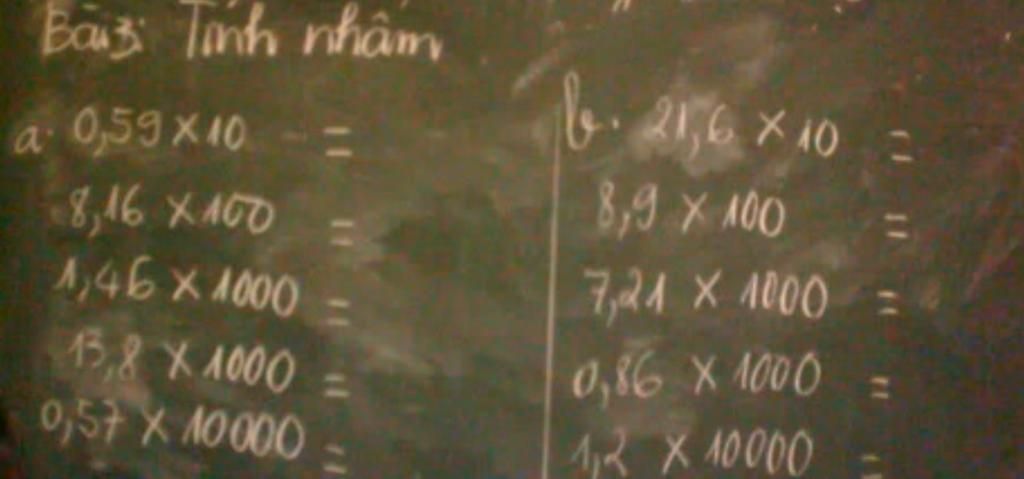 Bài 3: Tính nhâm
a. 0,59 × 10 =
8,16 × 100 =
1,46 × 1000 =
15,8 × 1000 =
0,57 × 10000 =
b. 21,6 × 10 =
8,9 × 100 =
7,21 × 1000 =
0,86 × 1000 =
1,2 × 10000 =